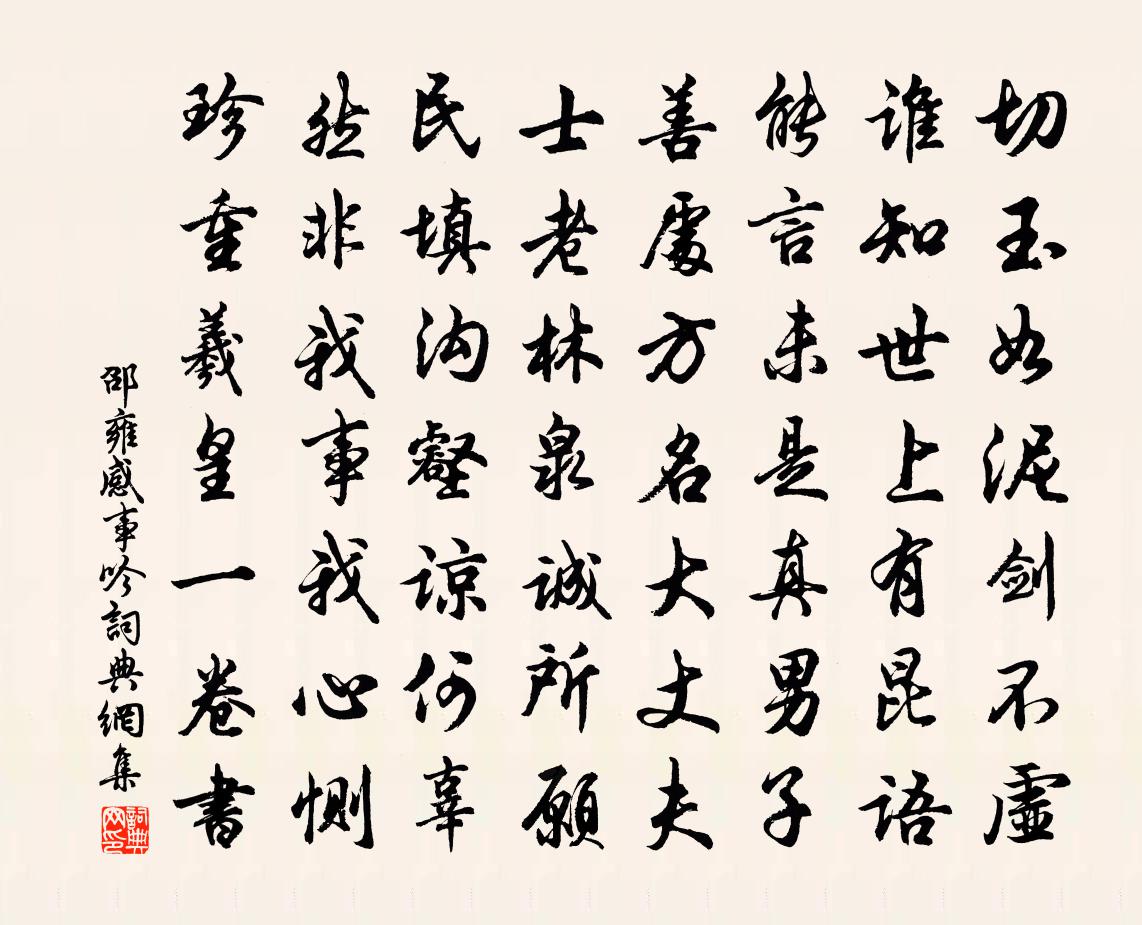 切玉如泥剑不虛
谁知世上有昆语
能言未是真男子
善處方名大丈夫
士老林泉诚所願
民填沟壑谅何辜
然非我事我心恻
珍重羲皇一卷書
邵雍感事吟詞典網集
詞典網印